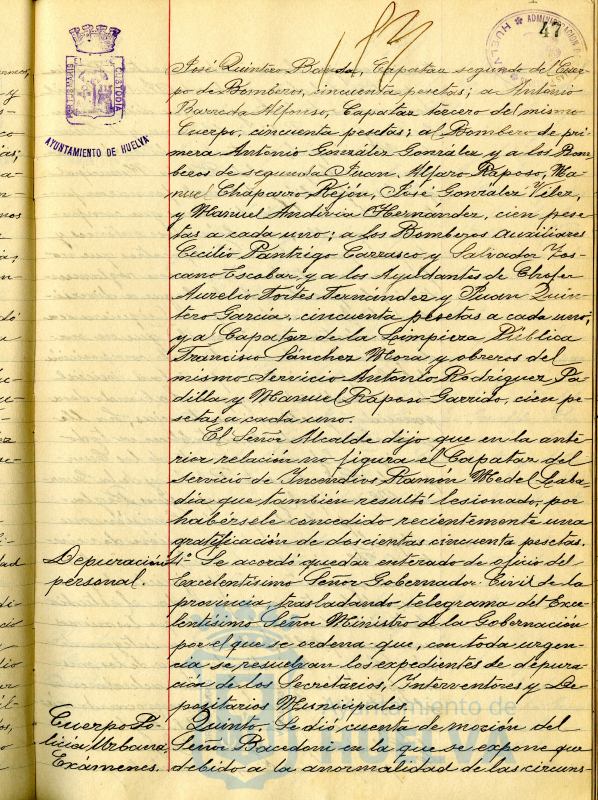 47
ADMINISTRACION
HUELVA
CUSTODIA
AYUNTAMIENTO DE HUELVA
José Quintero Banda, Capataz segundo del Cuer-
po de Bomberos, cincuenta pesetas; a Antonio
Barreda Alfonso, Capataz tercero del mismo
Cuerpo, cincuenta pesetas; al Bombero de pri-
mera Antonio González González y a los Bom-
beros de segunda Juan Alfaro Raposo, Ma-
nuel Chaparro Rejón, José González Vélez,
y Manuel Andivia Hernández, cien pese-
tas a cada uno; a los Bomberos auxiliares
Cecilio Pantrigo Carrasco y Salvador Tos-
cano Escobar, y a los Ayudantes de Chofer
Aurelio Fortes Fernández y Juan Quin-
tero García, cincuenta pesetas a cada uno;
y al Capataz de la Limpieza Pública
Francisco Sánchez Mora y obreros del
mismo Servicio Antonio Rodríguez Pa-
dilla y Manuel Raposo Garrido, cien pe-
setas a cada uno.
El Señor Alcalde dijo que en la ante-
rior relación no figura el Capataz del
Servicio de Incendios Ramón Medel Laba-
día que también resultó lesionado, por
habérsele concedido recientemente una
gratificación de doscientas cincuenta pesetas.
Depuración
personal.
4º Se acordó quedar enterado de oficio del
Excelentísimo Señor Gobernador Civil de la
provincia, trasladando telegrama del Exce-
lentísimo Señor Ministro de la Gobernación
por el que se ordena que, con toda urgen-
cia se resuelvan los expedientes de depura-
ción de los Secretarios, Interventores y De-
positarios Municipales.
Cuerpo Po-
licia Urbana,
Exámenes.
Quinto. Se dió cuenta de moción del
Señor Bacedoni en la que se expone que
debido a la anormalidad de las circuns-
Ayuntamiento de
HUELVA